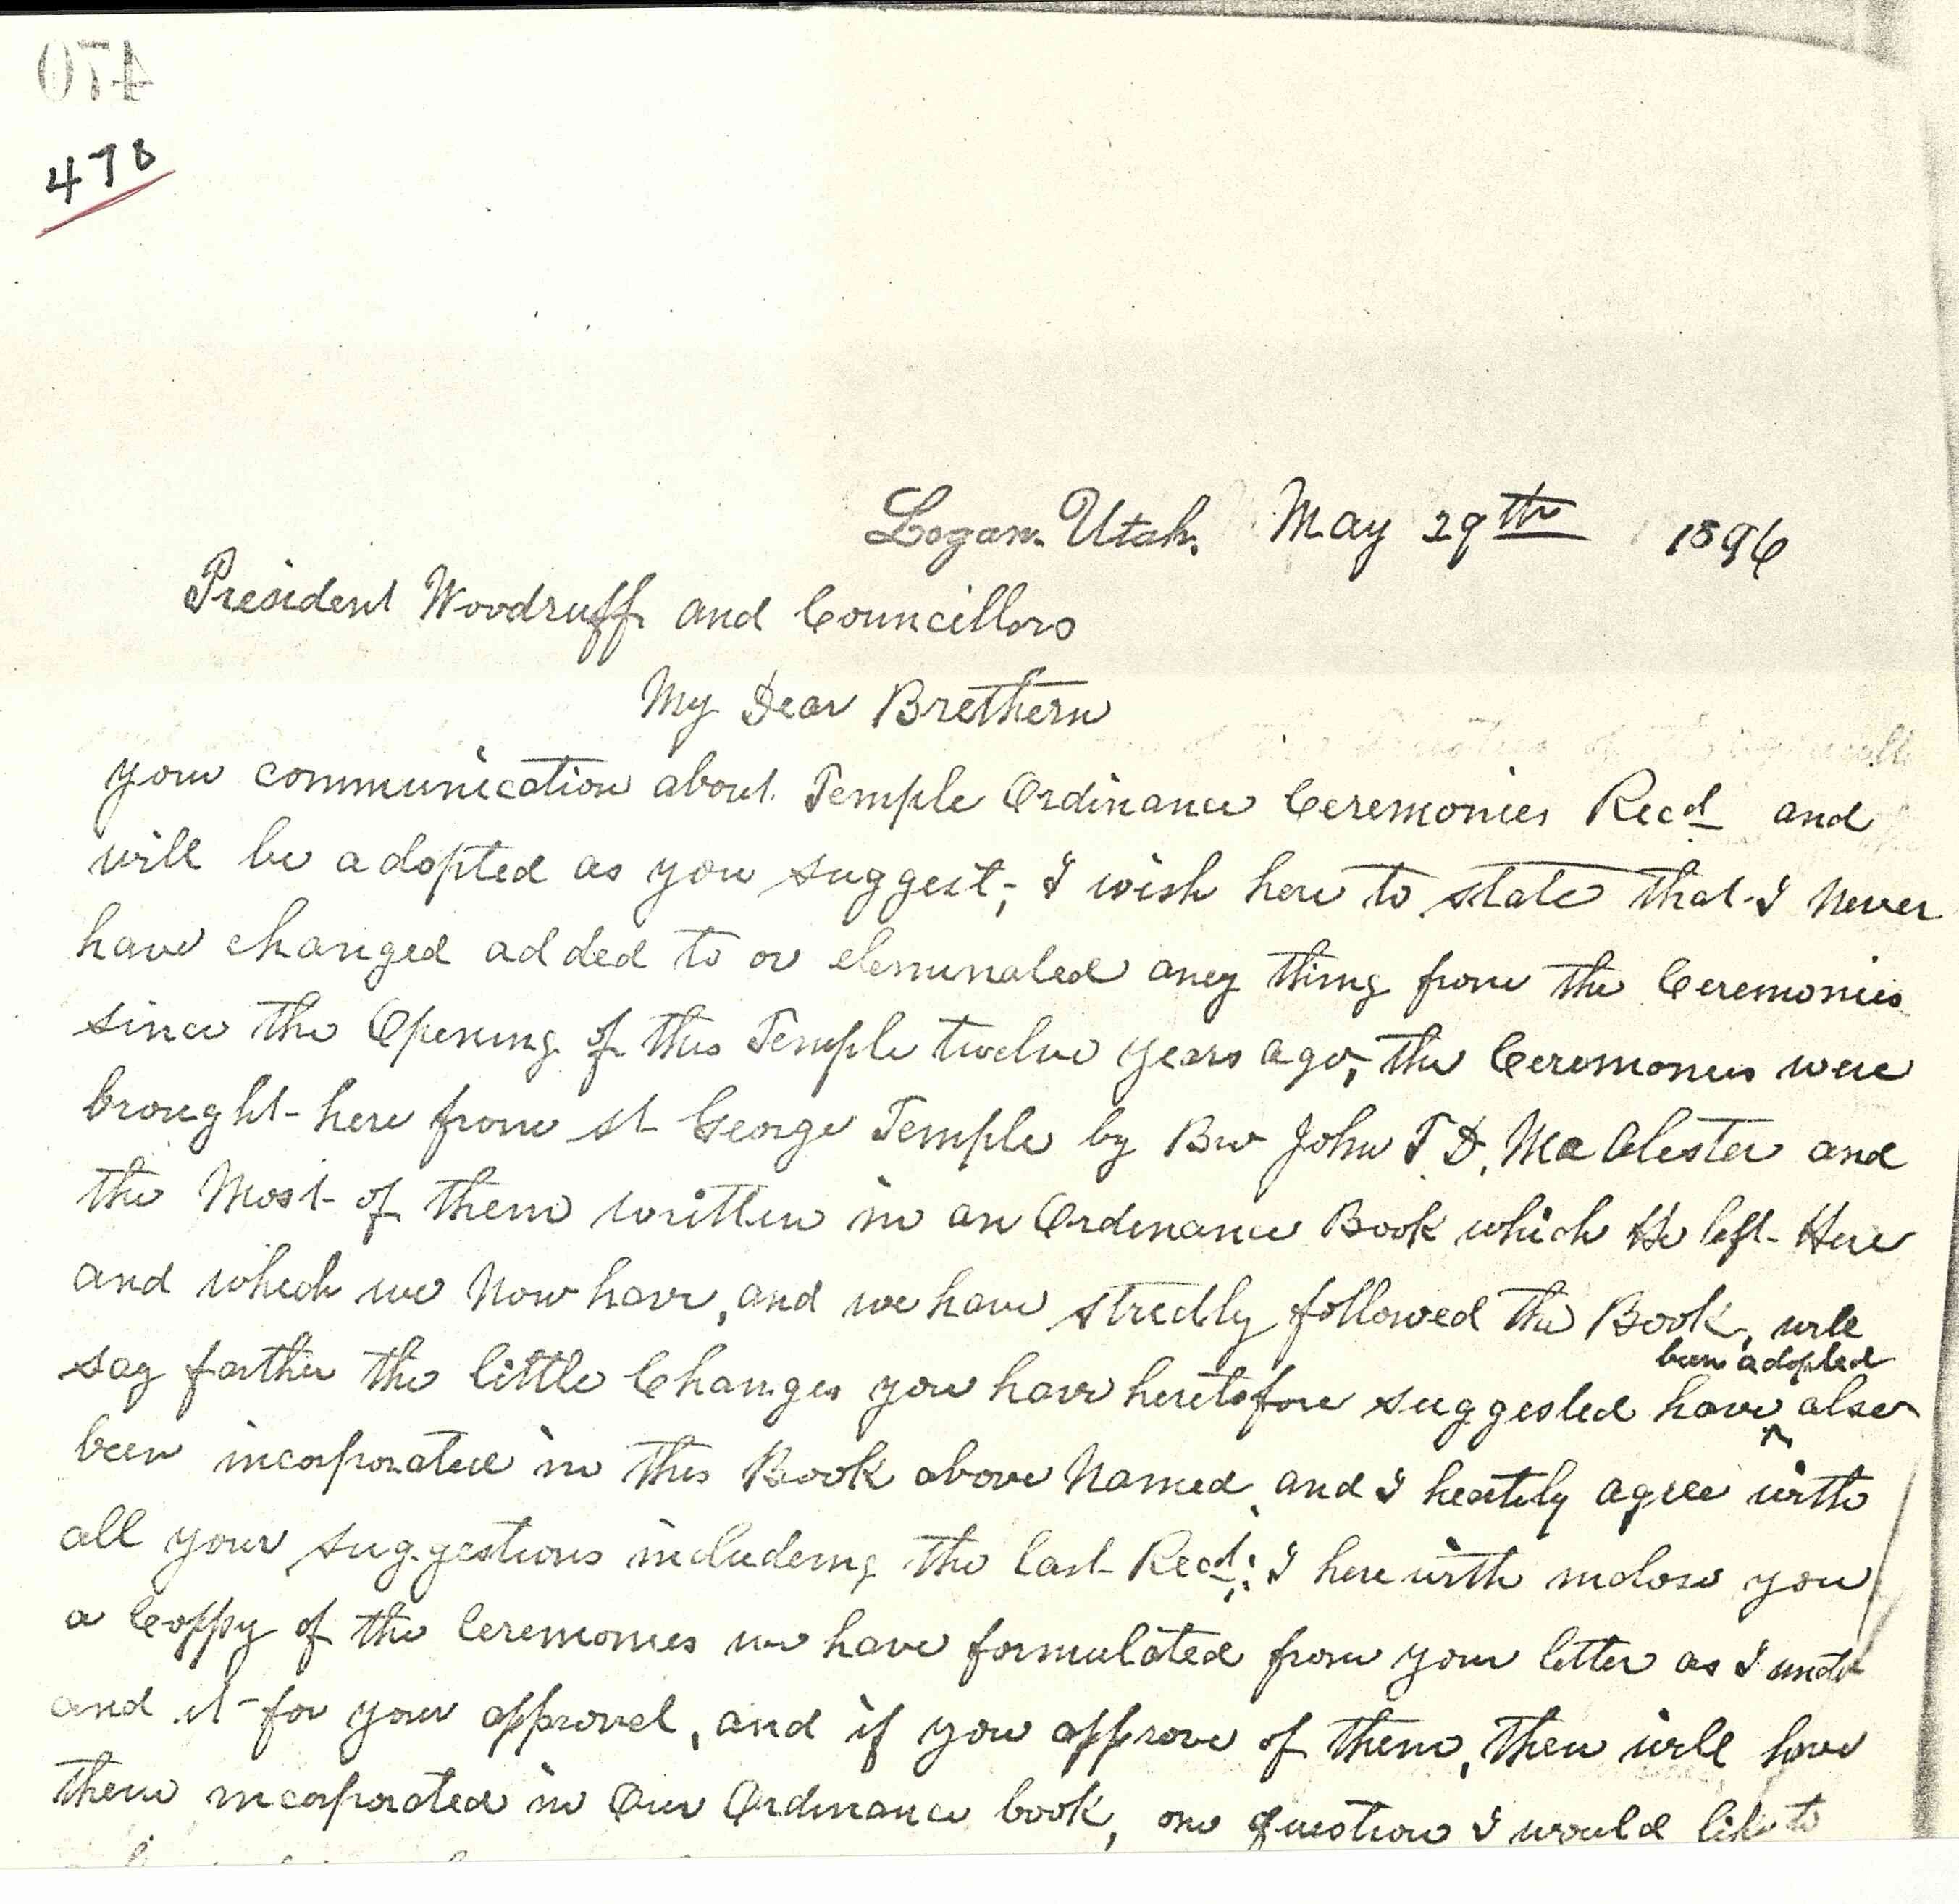 470
478
Logan. Utah. May 29th 1896
President Woodruff and Councillors
My Dear Brethern
your communication about Temple Ordinance Ceremonies Recd and
will be adopted as you suggest; I wish here to state that I never
have changed added to or elemenated aney thing from the Ceremonies
since the Opening of this Temple twelve years ago, the Ceremonies were
brought here from St George Temple by Bro John T D. McAlester and
the Most of them written in an Ordenance Book which He left Here
and which we Now have, and we have strectly followed the Book, will
say farther the little Changes you have heretofore suggested have been adopted also
been incorporated in this Book above Named, and I heartely agree with
all your suggestions includeing the last Recd; I here with inclose you
a Coppy of the Ceremonies we have formulated from your letter as I underst
and it for your approvel, and if you approve of them, then will have
them incorporated in Our Ordinance book, one question I would like to